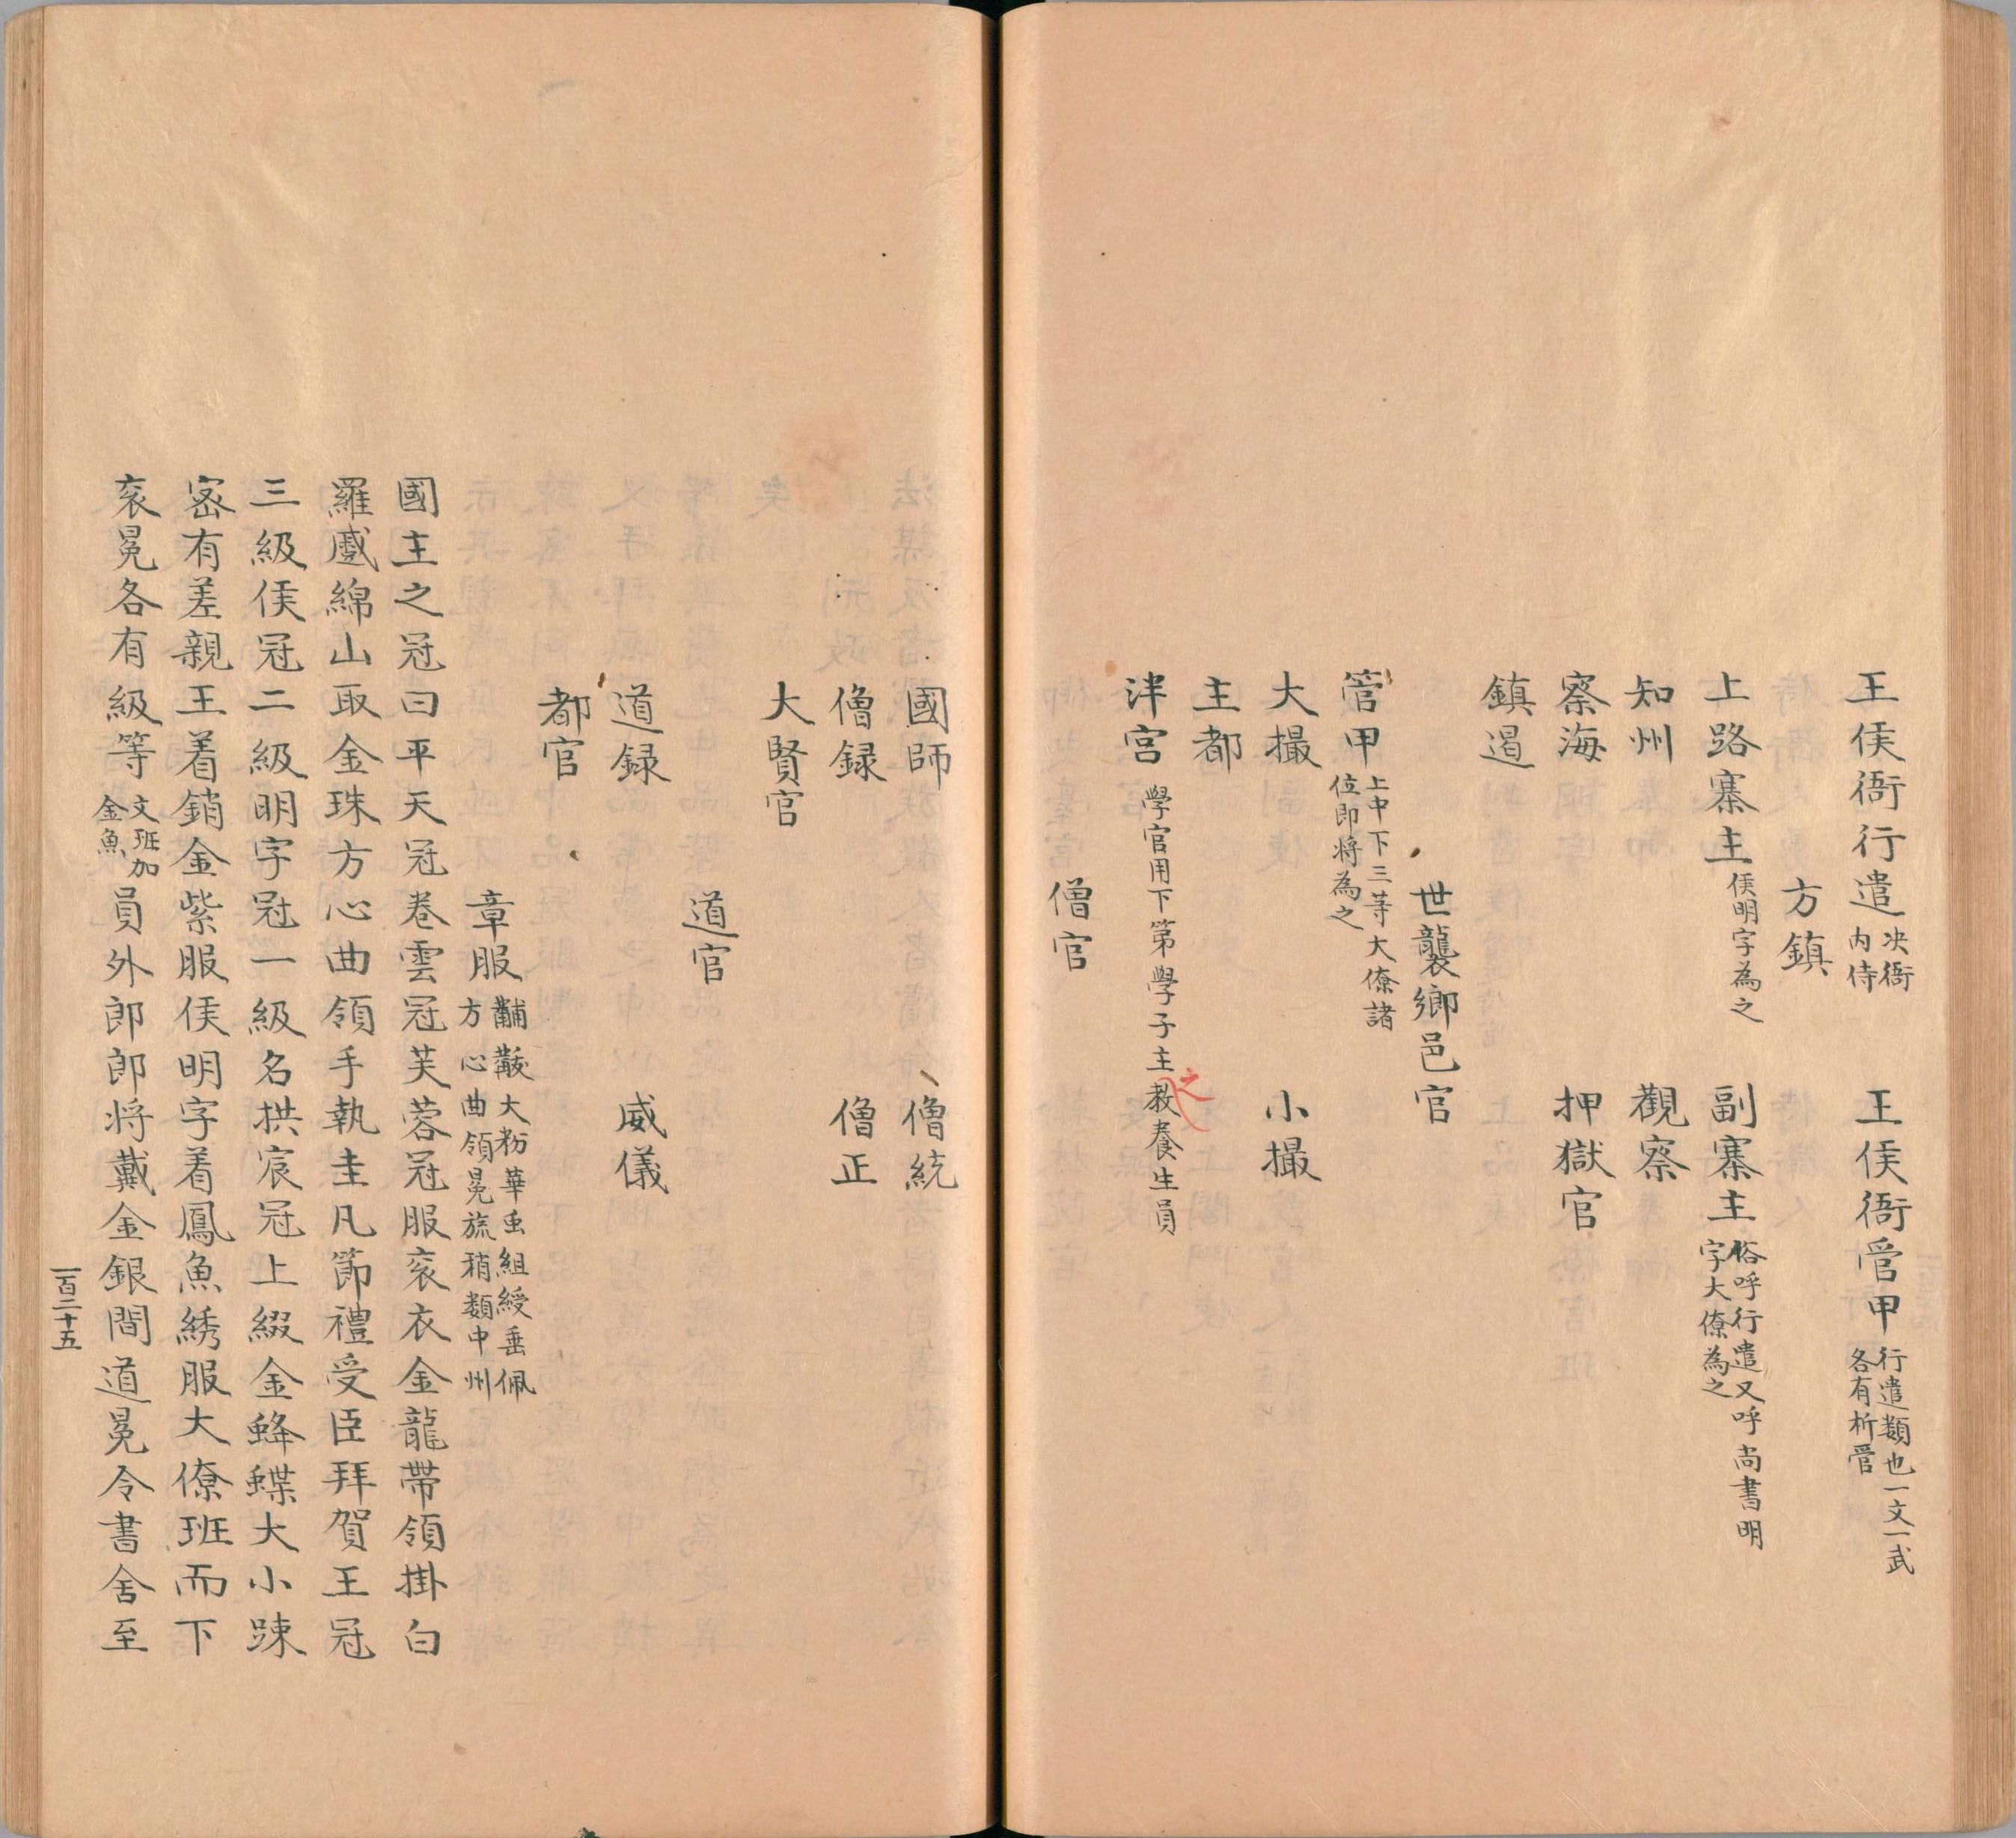 王侯衙行遣 决衙内侍 王侯衙管甲 行遣類也一文一武各有析管
方鎮
上路寨主 侯明字為之 副寨主 俗呼行遣又呼尚書明字大僚為之
知州 觀察
察海 押獄官
鎮遏
世襲鄉邑官
管甲 上中下三等大僚諸位即将為之
大撮 小撮
主都
泮宫 學官用下第學子主教養生員
之
僧官
國師 僧統
僧録 僧正
大賢官
道官
道録 威儀
都官
章服 黼黻大粉華虫組綬垂佩方心曲領冕旒稍類中州
國主之冠曰平天冠卷雲冠芙蓉冠服衮衣金龍帶領掛白
羅慼綿山取金珠方心曲領手執圭凡節禮受臣拜賀王冠
三級侯冠二級明字冠一級名拱宸冠上綴金蜂蝶大小踈
宻有差親王着銷金紫服侯明字着鳳魚綉服大僚班而下
衮冕各有級等 文班加金魚 員外郎郎将戴金銀間道冕令書舍至
一百二十五